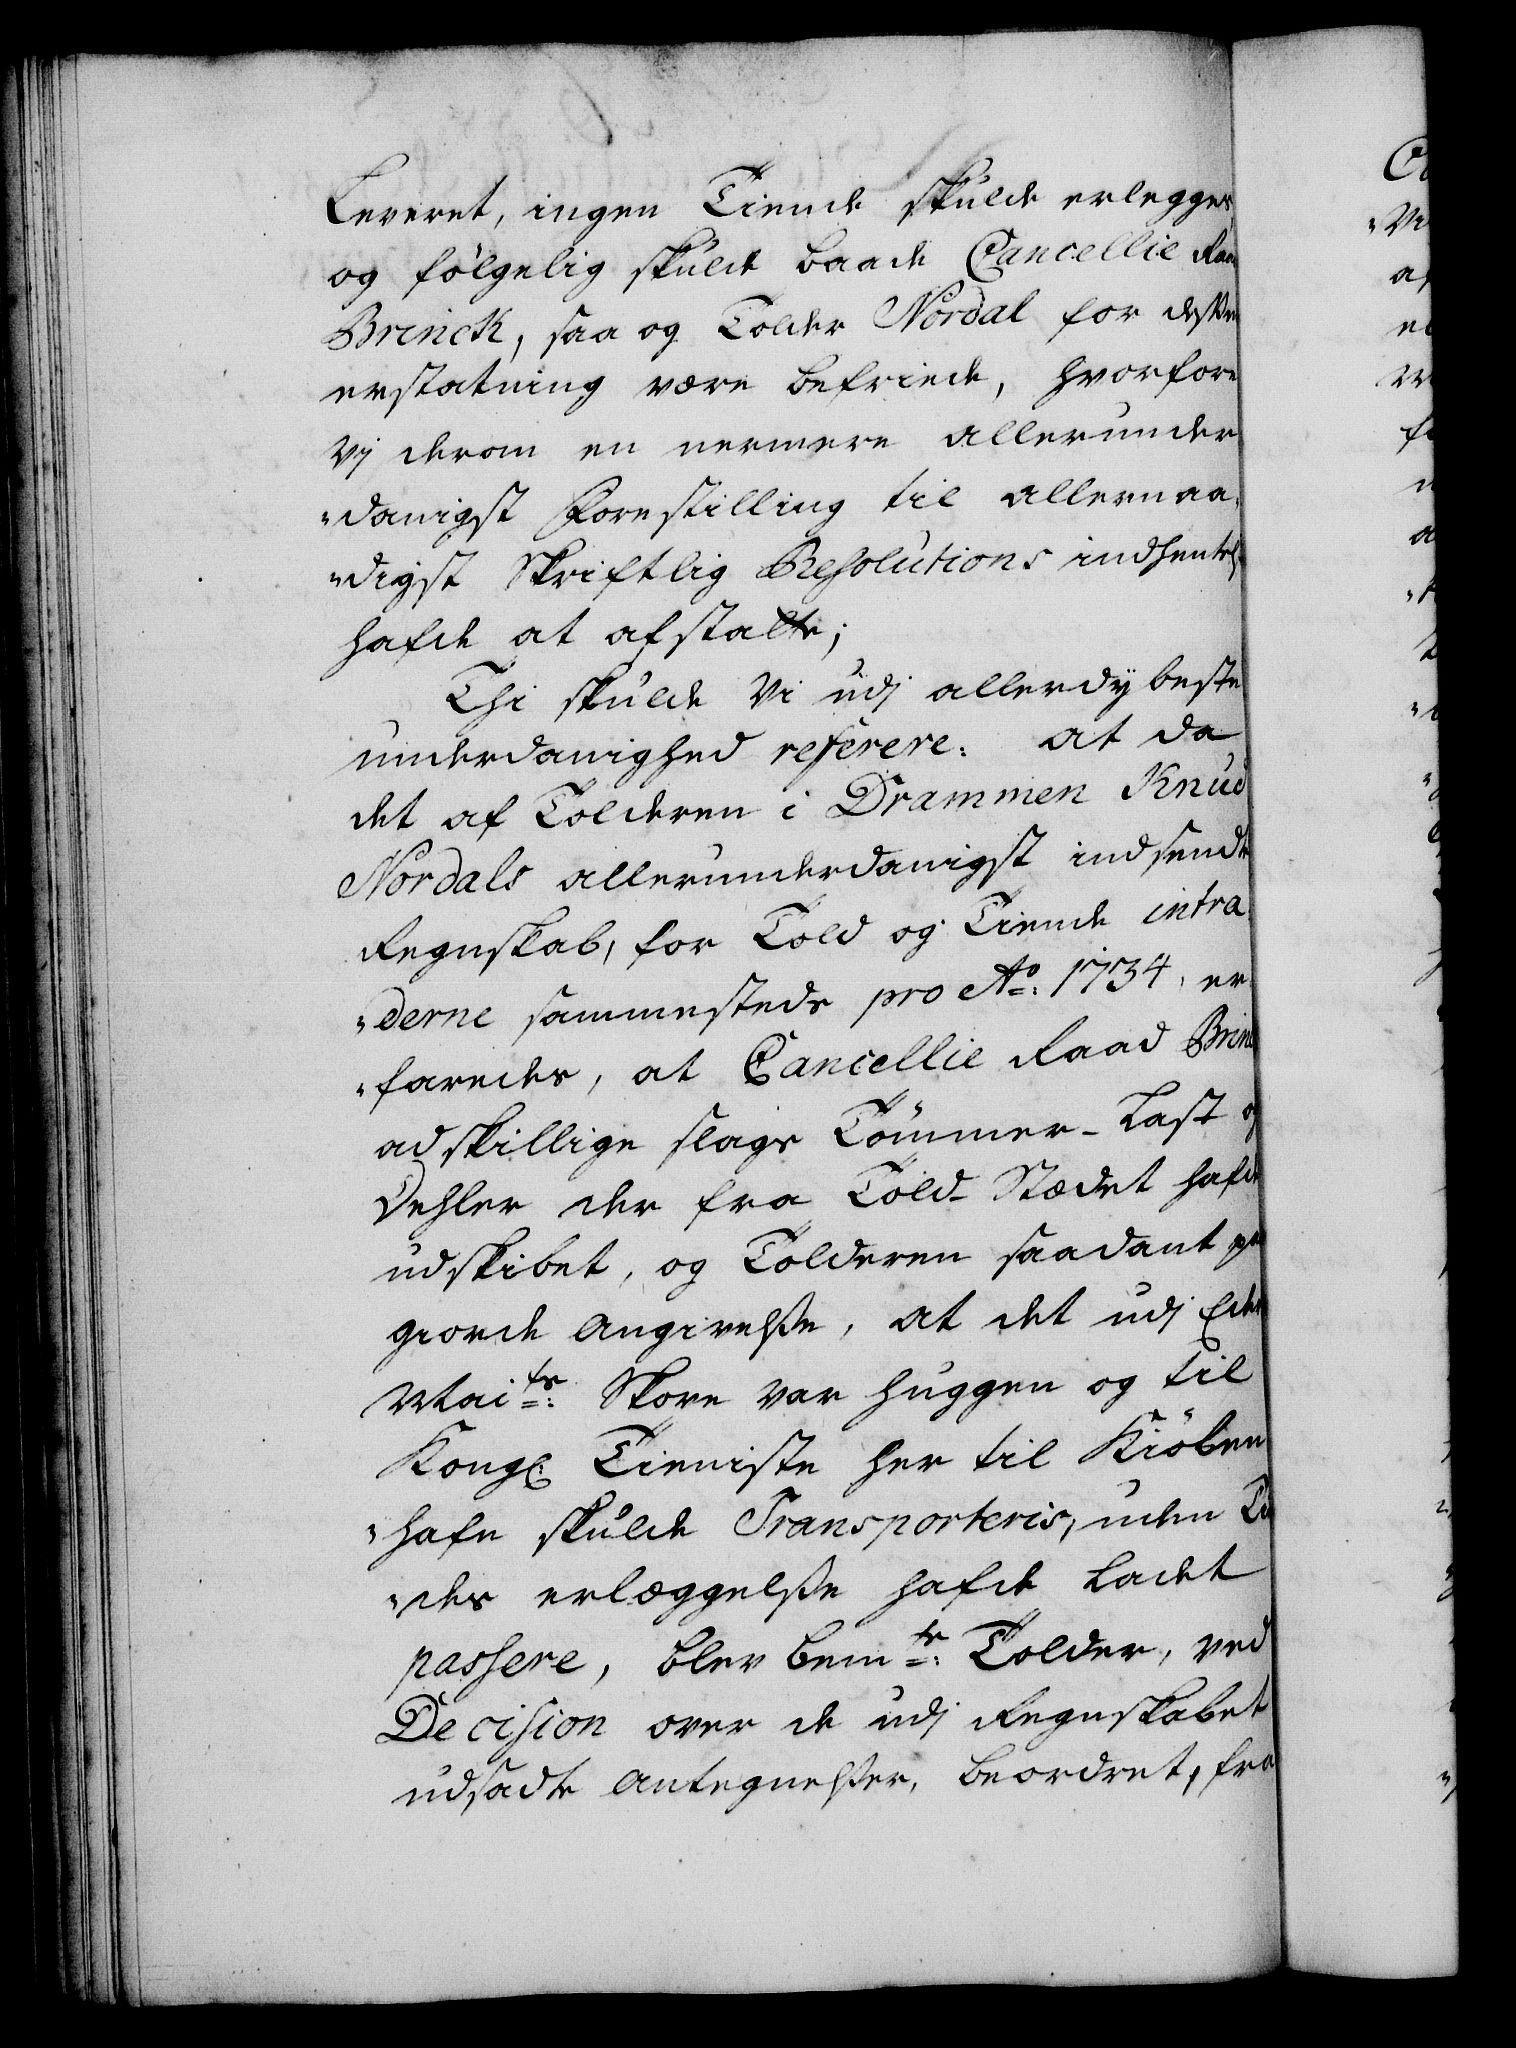 Leveret, ingen Tiende skulde erlegges,
og følgelig skulde baade Cancellie Raad
Brinck, saa og Tolder Nordal for desses
erstatning være befriede, hvorfore
Vj derom en nermere allerunder
"danigst Forestilling til allernaa,
"digst Skriftlig Resolutions indhentels
hafde at afstatte;
Thi skulde Vi udj allerdybeste
underdanighed referere: at da
det af Tolderen i Drammen Knud
Nordals allerunderdanigst indsendte
Regnskab, for Told og Tiende intra
"derne sammesteds pro Ao: 1734, er
"faredes, at Cancellie Raad Brinck
adskillige slags Tömmer-Last og
Dehler der fra Told-Stædet hafde
udskibet, og Tolderen saadant paa
giorde Angivelsse, at det udj Eders
Maits: Skove var huggen og til
Kongl: Tieniste her til Kiöben
"hafn skulde Transporteris, uden Tien
"des erlæggelsse hafde Ladet
passere, blev bemte: Tolder, ved
Decision over de udj Regnskabet
udsadte Antegnelsser, beordret, fra